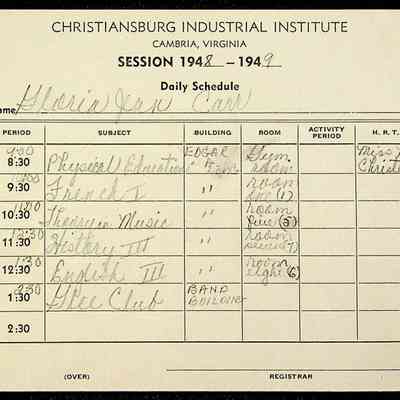 CHRISTIANSBURG INDUSTRIAL INSTITUTE
CAMBRIA, VIRGINIA
SESSION 1948 – 1949
Daily Schedule
ame Gloria Jean Carr
PERIOD SUBJECT BUILDING ROOM ACTIVITY PERIOD H. R. T.
9:30 8:30 Physical Education EDGAR A. Gym room Miss Christ
9:30 French I " room one (1)
10:30 Theory in Music " room five (5)
12:30 11:30 History III " room seven (7)
1:30 12:30 English III " room eight (6)
2:30 1:30 Glee Club BAND BUILDING
2:30
(OVER) REGISTRAR